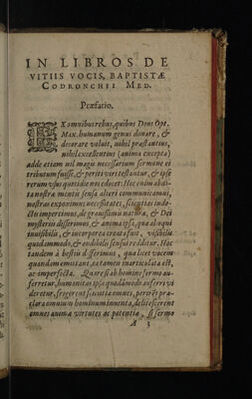 IN LIBROS DE
VITIIS VOCIS, BAPTISTÆ
CODRONCHII MED.
Præfatio.
EX omnibus rebus, quibus Deus Opt.
Max. humanum genus donare, &
decorare voluit, nihil præstantius,
nihil excellentius (anima excepta)
adde etiam nil magis necessarium sermone ei
tributum fuisse, & periti viri testantur, & ipse
rerum usus quotidie nos edocet: Hoc enim abdi-
ta nostræ mentis sensa alteri communicamus,
nostras exponimus necessitates, scientias indo-
ctis impertimus, de gravissimis naturæ, & Dei
mysteriis disserimus, & anima ipsa, quæ aliàs
invisibilis, & incorporea creata fuit, visibilis
quodammodo, & audibilis sensui redditur. Hoc
tandem à bestiis differimus, quæ licet vocem
quandam emittant, ea tamen inarticulata est,
ac imperfecta. Quare si ab homine sermo au-
ferretur, humanitas ipsa quodammodo auferri vi
deretur, frigerent scientiæ omnes, perirent præ-
clara omnium hominum inventa, delitescerent
omnes animæ virtutes ac potentiæ. Si sermo
A 3